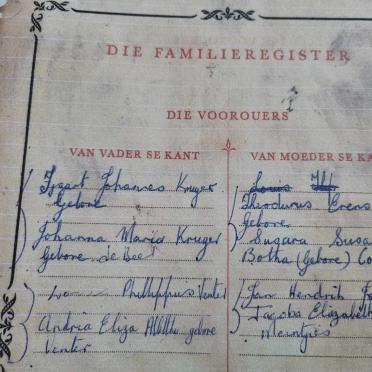 DIE FAMILIEREGISTER
DIE VOOROUERS
VAN VADER SE KANT
Johannes Kruger
Gebore
Johanna Maria Kruger
Gebore de Beer
Phillippus Venter
Andria Eliza gebore
Venter
VAN MOEDER SE KA
Theodurus Erens
Gebore
Susara Susa
Botha (Gebore) Co
Jan Hendrik
Jacoba Elizabeth
Meintjies